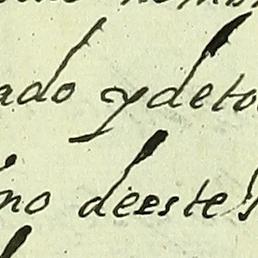 ado ydeto
no deeste